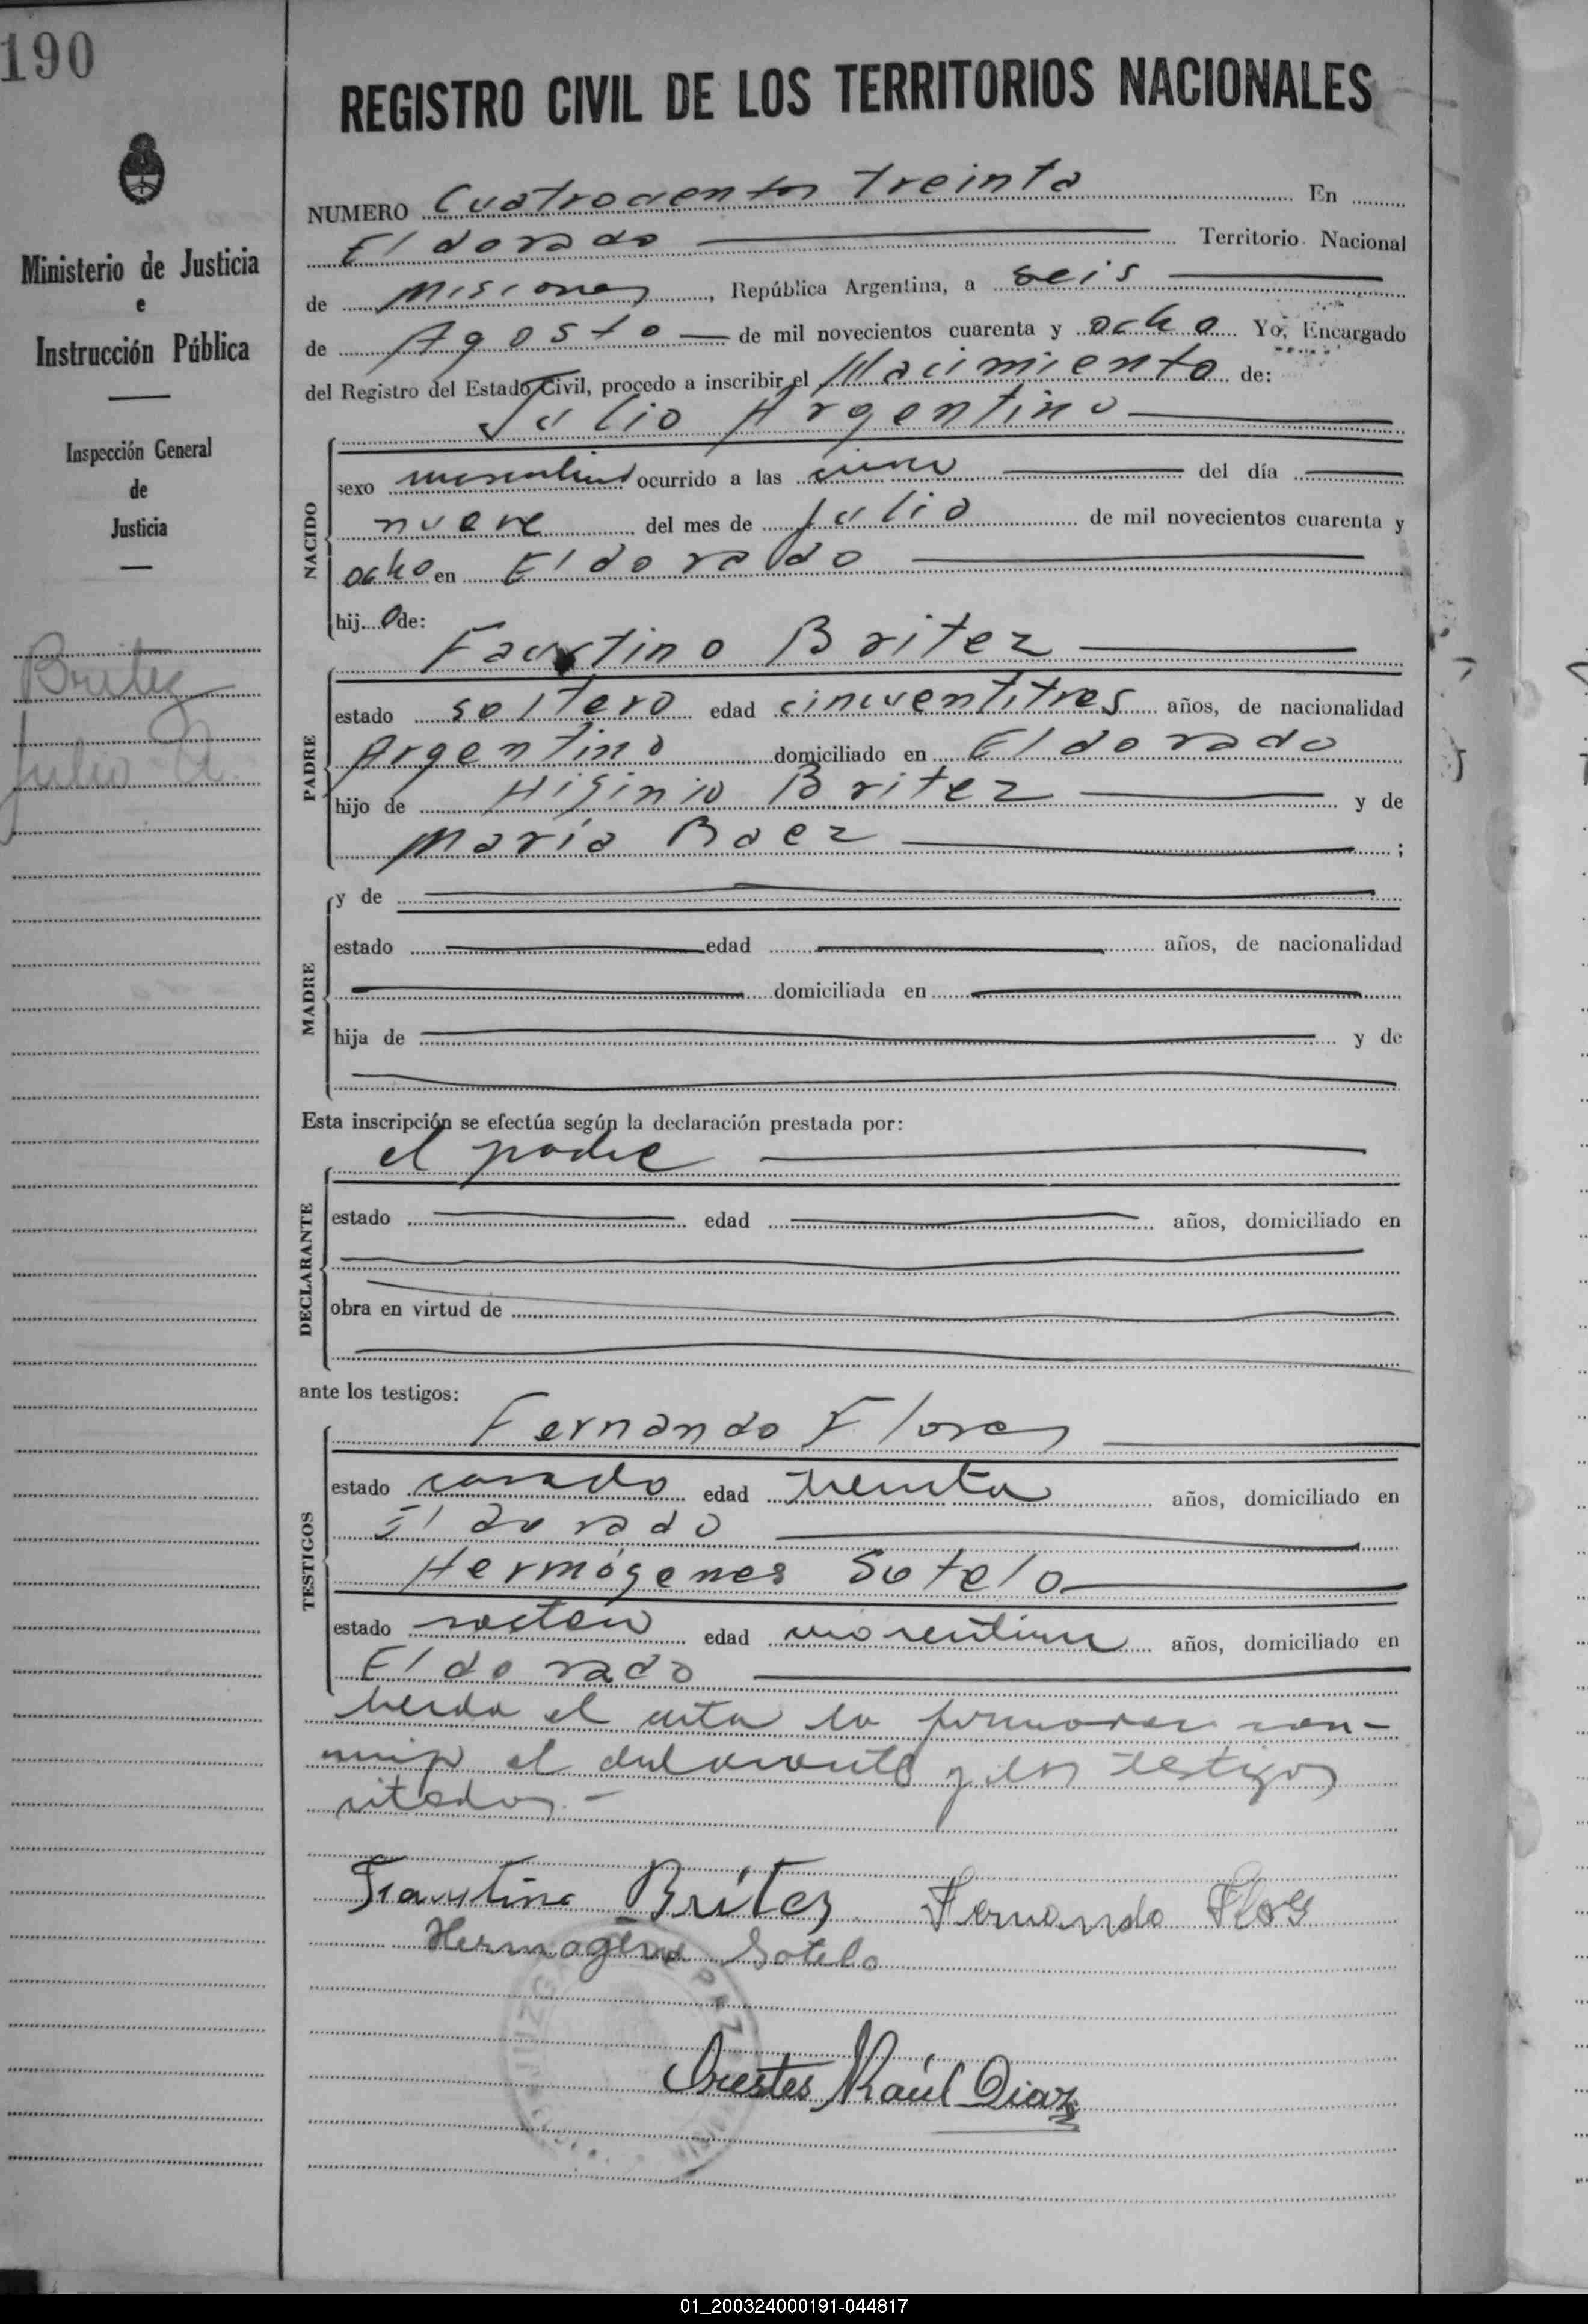 190
REGISTRO CIVIL DE LOS TERRITORIOS NACIONALES
Ministerio de Justicia
e
Instrucción Pública
Inspección General
de
Justicia
Britez
Julio A.
NUMERO Cuatrocientos treinta En
Eldorado Territorio Nacional
de Misiones, República Argentina, a seis
de Agosto de mil novecientos cuarenta y ocho Yo, Encargado
del Registro del Estado Civil, procedo a inscribir el Nacimiento de:
Julio Argentino
NACIDO
sexo masculino ocurrido a las cinco del día
nueve del mes de Julio de mil novecientos cuarenta y
ocho en Eldorado
hijo de:
Faustino Britez
PADRE
estado soltero edad cincuentitres años, de nacionalidad
Argentino domiciliado en Eldorado
hijo de Higinio Britez y de
María Baez ;
MADRE
y de
estado edad años, de nacionalidad
domiciliada en
hija de y de
Esta inscripción se efectúa según la declaración prestada por:
el padre
DECLARANTE
estado edad años, domiciliado en
obra en virtud de
ante los testigos:
Fernando Flores
TESTIGOS
estado casado edad treinta años, domiciliado en
Eldorado
Hermógenes Sotelo
estado soltero edad años, domiciliado en
Eldorado
Leida el acta la firmaron con-
migo el declarante y los testigos
citados.-
Faustino Britez Fernando Flores
Hermogene Sotelo
Orestes Raúl Diaz
01_200324000191-044817